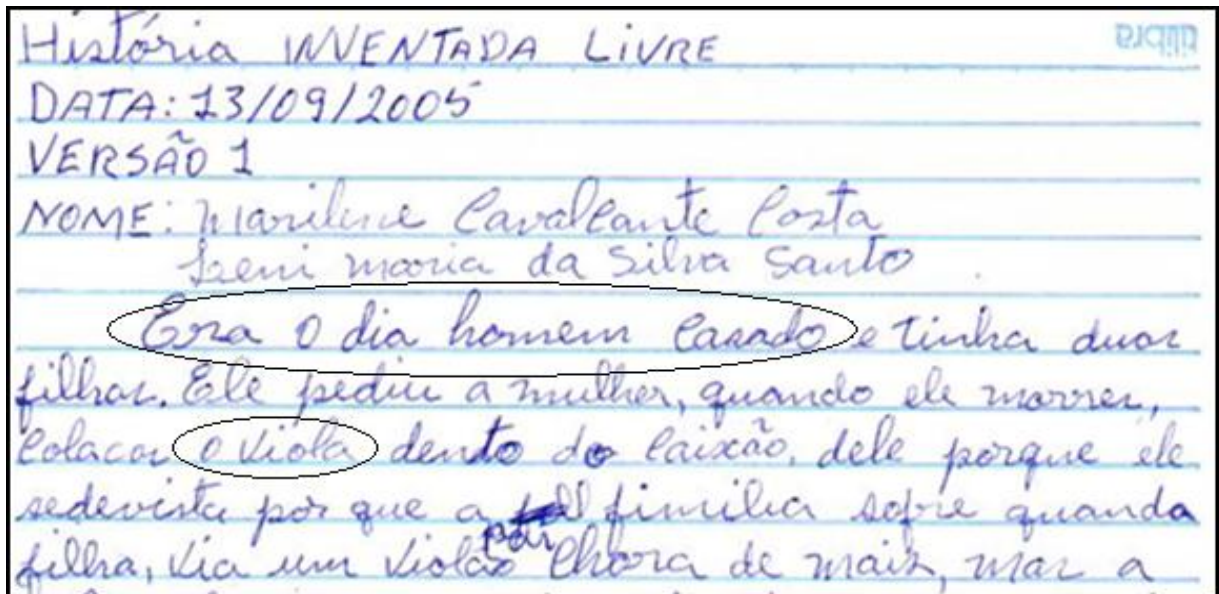 História INVENTADA LIVRE
DATA: 13/09/2005
VERSÃO 1
NOME: Marilene Cavalcante Costa
Izeni maria da Silva Santo
Era o dia homem casado e tinha duas
filhas. Ele pediu a mulher, quando ele morrer,
colocar o viola dento do caixão, dele porque ele
sedevista por que a fimilia sofre quanda
filha, via um violão par chora de mais, mas a